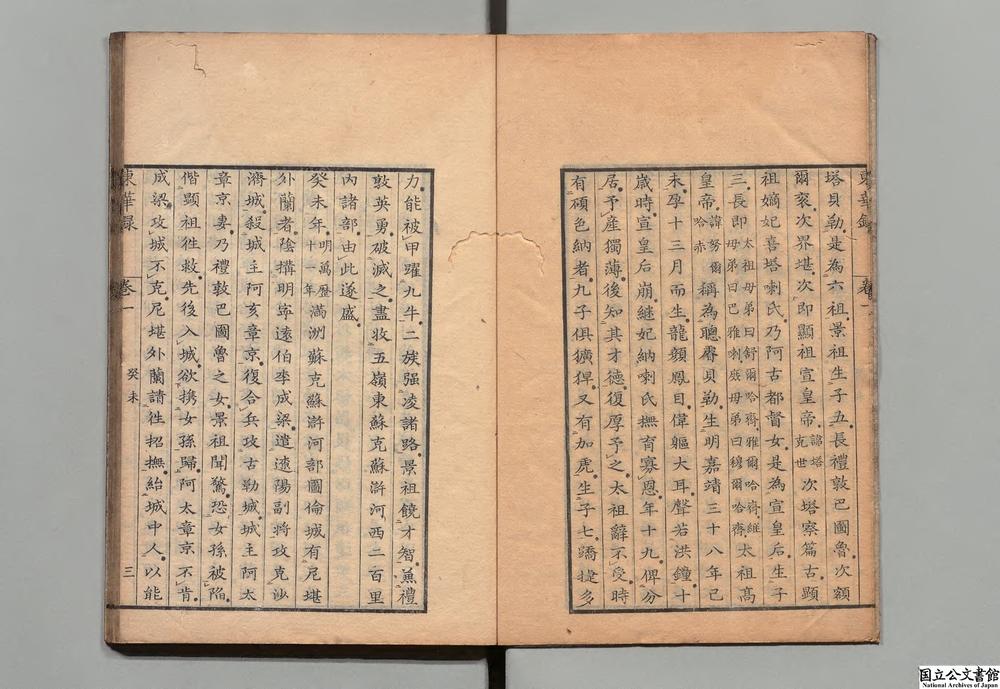 東華録 卷一
塔貝勒是為六祖景祖生子五長禮敦巴圖魯次額
爾袞次界堪次即顯祖宣皇帝諱塔克世次塔察篇古顯
祖嫡妃喜塔喇氏乃阿古都督女是為宣皇后生子
三長即太祖母弟曰舒爾哈齊雅爾哈齊継母弟曰巴雅喇庶母弟曰穆爾哈齊太祖高
皇帝諱努爾哈赤稱為聰睿貝勒生明嘉靖三十八年己
未孕十三月而生龍顔鳳目偉軀大耳聲若洪鐘十
歲時宣皇后崩継妃納喇氏撫育寡恩年十九俾分
居予産獨薄後知其才德復厚予之太祖辭不受時
有碩色納者九子俱獷猂又有加虎生子七蹻捷多
力能被甲躍九牛二族强凌諸路景祖饒才智兼禮
敦英勇破滅之盡收五嶺東蘇克蘇滸河西二百里
內諸部由此遂盛
癸未年明萬歷十一年滿洲蘇克蘇滸河部圖倫城有尼堪
外蘭者陰搆明寧遠伯李成梁遣遼陽副將攻克沙
濟城殺城主阿亥章京復合兵攻古勒城城主阿太
章京妻乃禮敦巴圖魯之女景祖聞驚恐女孫被陷
偕顯祖徃救先後入城欲携女孫歸阿太章京不肯
成梁攻城不克尼堪外蘭請徃招撫紿城中人以能
東華録 卷一 癸未 三
国立公文書館
National Archives of Japan